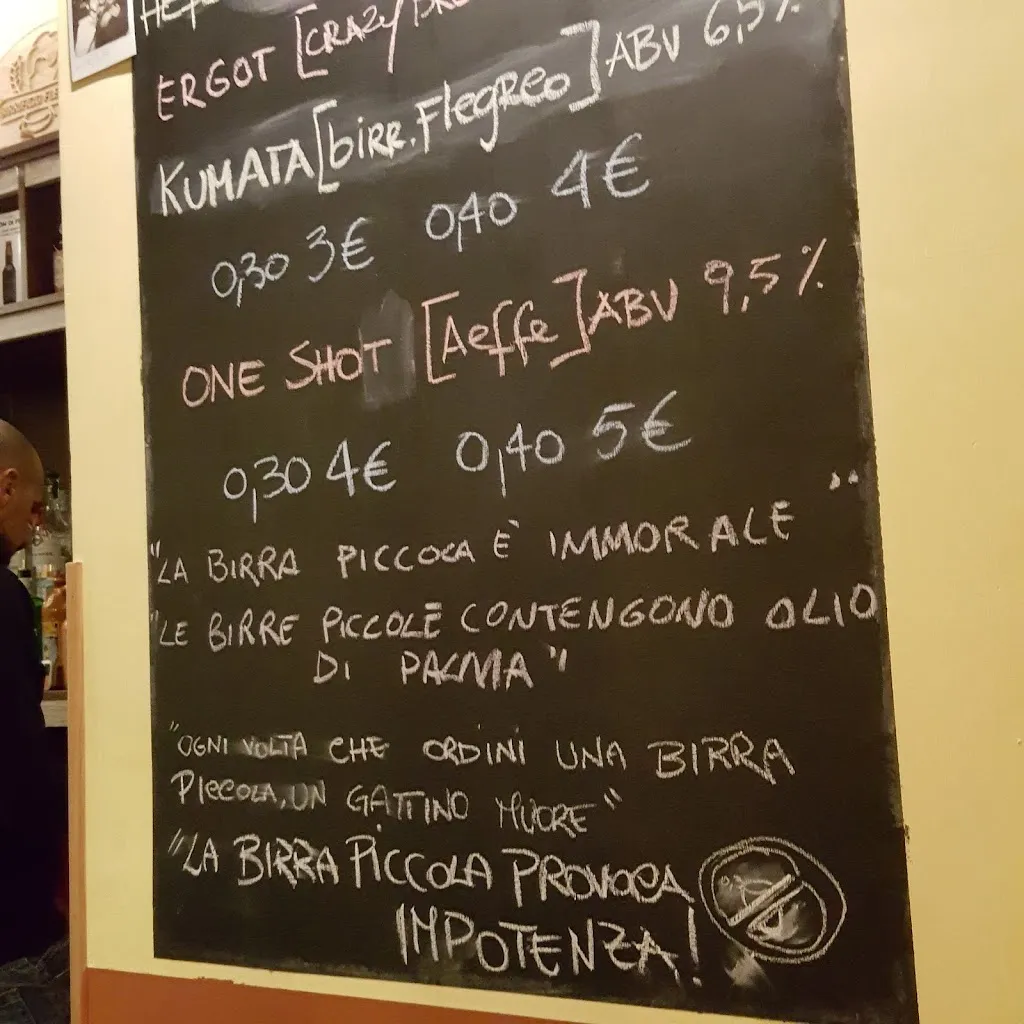 ERGOT [CRAZY
KUMATA [birr. Flegreo] ABV 6,5%
0,30 3€ 0,40 4€
ONE SHOT [Aeffe] ABV 9,5%
0,30 4€ 0,40 5€
"LA BIRRA PICCOLA È IMMORALE"
"LE BIRRE PICCOLE CONTENGONO OLIO
DI PALMA"
"OGNI VOLTA CHE ORDINI UNA BIRRA
PICCOLA, UN GATTINO MUORE"
"LA BIRRA PICCOLA PROVOCA
IMPOTENZA!